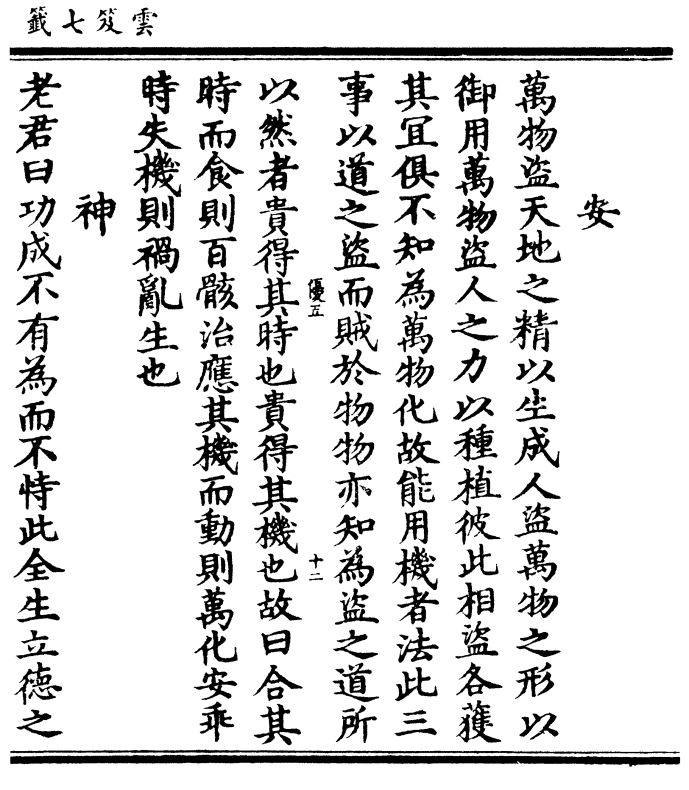 雲笈七籤
安
萬物盜天地之精以生成人盜萬物之形以
御用萬物盜人之力以種植彼此相盜各獲
其宜俱不知為萬物化故能用機者法此三
事以道之盜而賊於物物亦知為盜之道所
優五
十二
以然者貴得其時也貴得其機也故曰合其
時而食則百骸治應其機而動則萬化安乖
時失機則禍亂生也
神
老君曰功成不有為而不恃此全生立德之